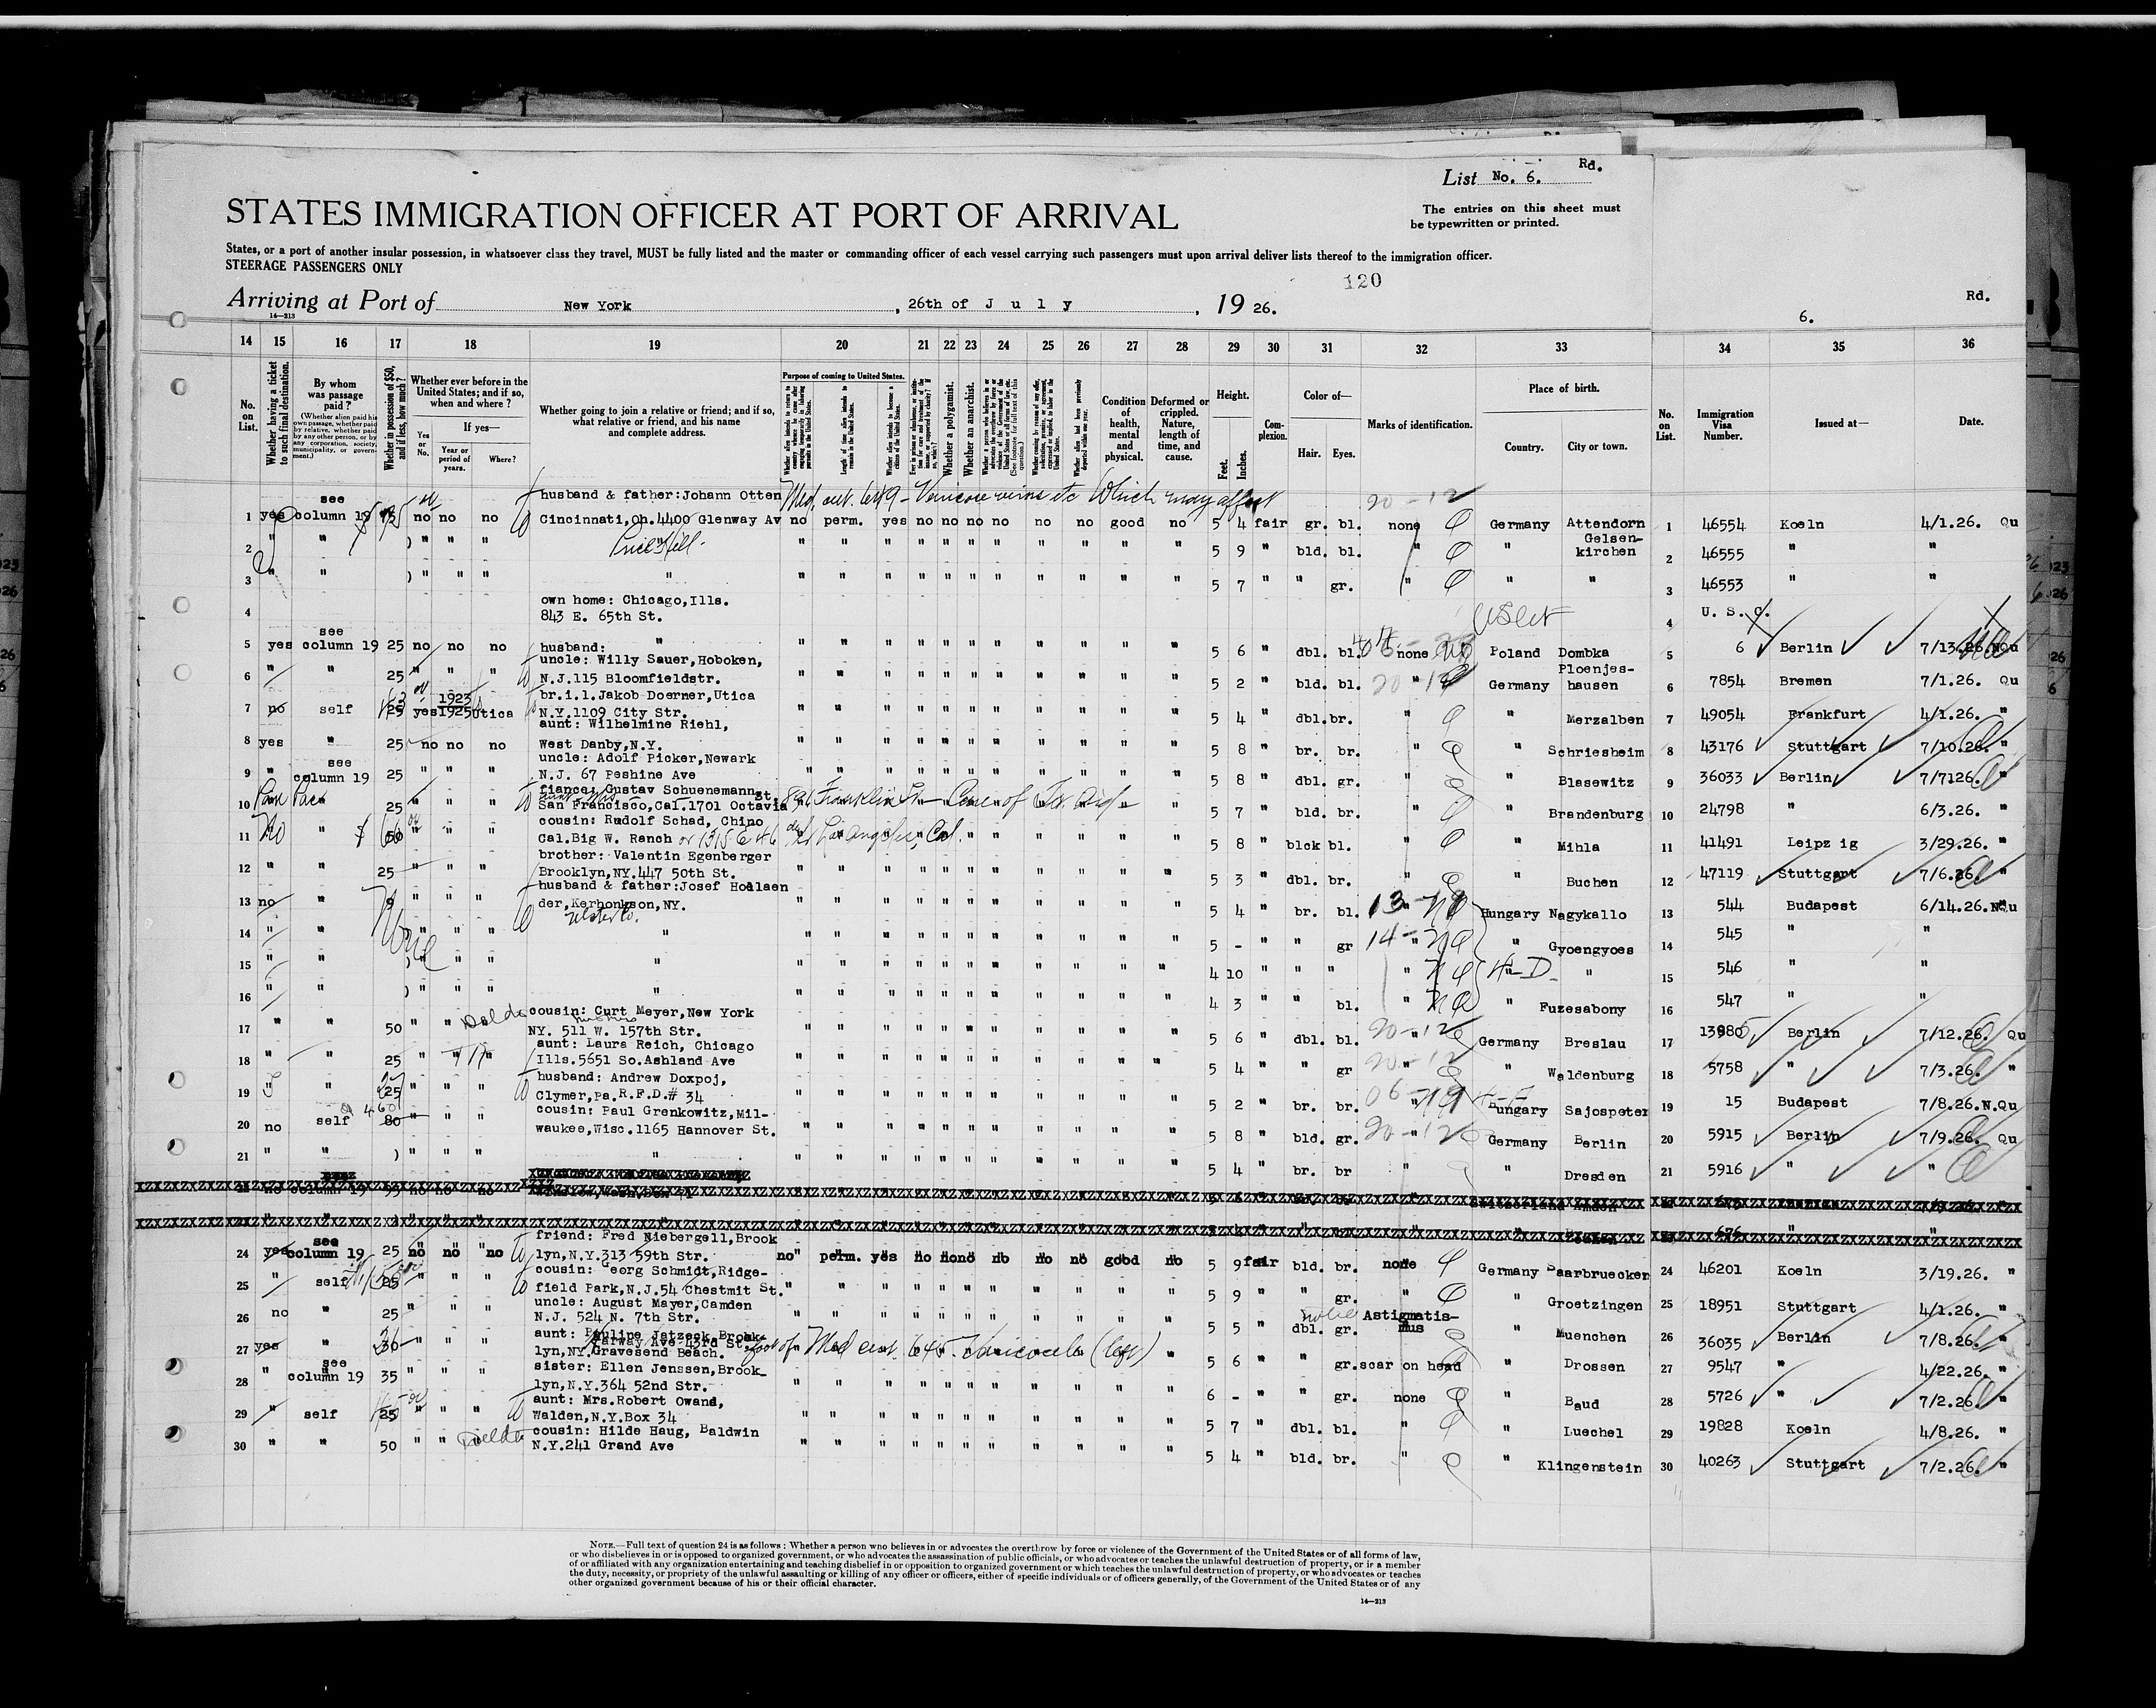 List No. 6. Rd.
STATES IMMIGRATION OFFICER AT PORT OF ARRIVAL
The entries on this sheet must
be typewritten or printed.
States, or a port of another insular possession, in whatsoever class they travel, MUST be fully listed and the master or commanding officer of each vessel carrying such passengers must upon arrival deliver lists thereof to the immigration officer.
STEERAGE PASSENGERS ONLY
120
Arriving at Port of New York, 26th of July, 19 26.
14—213
6. Rd.
14 15 16 17 18 19 20 21 22 23 24 25 26 27 28 29 30 31 32 33 34 35 36
No. on List.
Whether having a ticket to such final destination.
By whom was passage paid?
(Whether alien paid his own passage, whether paid by relative, whether paid by any other person, or by any corporation, society, municipality, or government.)
Whether in possession of $50, and if less, how much?
Whether ever before in the United States; and if so, when and where?
If yes—
Yes or No.
Year or period of years.
Where?
Whether going to join a relative or friend; and if so, what relative or friend, and his name and complete address.
Purpose of coming to United States.
Length of time alien intends to remain in the United States.
Whether alien intends to become a citizen of the United States.
Whether a polygamist.
Whether an anarchist.
Condition of health, mental and physical.
Deformed or crippled. Nature, length of time, and cause.
Height.
Feet.
Inches.
Complexion.
Color of—
Hair.
Eyes.
Marks of identification.
Place of birth.
Country.
City or town.
No. on List.
Immigration Visa Number.
Issued at—
Date.
husband & father:Johann Otten Med. cert. 6249 - Varicose veins etc Which may affect 20-12
1 yes see column 19 no no no Cincinnati,Oh.4400 Glenway Av no perm. yes no no no no no no good no 5 4 fair gr. bl. none Germany Attendorn 1 46554 Koeln 4/1.26. Qu
2 " " ) " " " Price Hill. " " " " " " " " " " " 5 9 " bld. bl. " " Gelsen-kirchen 2 46555 " "
3 " " ) " " " " " " " " " " " " " " " " 5 7 " " gr. " " " 3 46553 " "
own home: Chicago,Ills.
4 843 E. 65th St. 4 U. S. C.
5 yes see column 19 25 no no no husband: " " " " " " " " " " " " 5 6 " dbl. bl. none Poland Dombka 5 6 Berlin 7/13.26.NQu
uncle: Willy Sauer,Hoboken,
6 " " 25 " " " N.J.115 Bloomfieldstr. " " " " " " " " " " " 5 2 " bld. bl. 20-12 Germany Ploenjes-hausen 6 7854 Bremen 7/1.26. Qu
br.i.l.Jakob Doerner,Utica
7 no self 25 yes 1923 1925 Utica N.Y.1109 City Str. " " " " " " " " " " " 5 4 " dbl.br. " " Merzalben 7 49054 Frankfurt 4/1.26. "
aunt: Wilhelmine Riehl,
8 yes " 25 no no no West Danby,N.Y. " " " " " " " " " " " 5 8 " br. br. " " Schriesheim 8 43176 Stuttgart 7/10.26. "
uncle: Adolf Picker,Newark
9 " see column 19 25 " " " N.J. 67 Peshine Ave " " " " " " " " " " " 5 8 " dbl. gr. " " Blasewitz 9 36033 Berlin 7/7126. "
fiance: Gustav Schuenemann
10 25 " " " San Francisco,Cal.1701 Octavia St. 5 7 " bld. br. " " Brandenburg 10 24798 " 6/3.26. "
cousin: Rudolf Schad, Chino
11 No " 50 " " " Cal.Big W. Ranch or 1315 E 46 Los Angeles, Cal. " " " 5 8 " blck bl. " " Mihla 11 41491 Leipz ig 3/29.26. "
brother: Valentin Egenberger
12 " " 25 " " " Brooklyn,NY.447 50th St. " " " " " " " " " " " 5 3 " dbl. br. " " Buchen 12 47119 Stuttgart 7/6.26. "
husband & father:Josef Hodlaen
13 no " " " " der,Kerhonkson,NY. Ulster Co. " " " " " " " " " " " 5 4 " br. bl. 13- Hungary Nagykallo 13 544 Budapest 6/14.26.NQu
14 " " None " " " " " " " " " " " " " " " " 5 - " " gr 14- " Gyoengyoes 14 545 " "
15 " " ) " " " " " " " " " " " " " " " " 4 10 " " " " H-D " 15 546 " "
16 " " ) " " " " " " " " " " " " " " " " 4 3 " " bl. " " Fuzesabony 16 547 " "
cousin: Curt Meyer,New York
17 " " 50 " " NY. 511 W. 157th Str. " " " " " " " " " " " 5 6 " dbl. bl. 20-12 Germany Breslau 17 13980 Berlin 7/12.26. Qu
aunt: Laura Reich, Chicago
18 " " 25 " " " Ills.5651 So.Ashland Ave " " " " " " " " " " " 5 4 " " gr 20-12 " Waldenburg 18 5758 " 7/3.26. "
husband: Andrew Doxpoj,
19 " " 25 " " " Clymer,Pa.R.F.D.# 34 " " " " " " " " " " " 5 2 " br. br. " Hungary Sajospeter 19 15 Budapest 7/8.26.N.Qu
cousin: Paul Grenkowitz,Mil-
20 no self 460 80 " " " waukee,Wisc.1165 Hannover St. " " " " " " " " " " " 5 8 " bld. gr. 20-12 Germany Berlin 20 5915 Berlin 7/9.26. Qu
21 " " ) " " " " " " " " " " " " " " " " 5 4 " br. br " " Dresden 21 5916 " "
no column 19 no no no Switzerland Amden
676 " "
friend: Fred Niebergell,Brook
24 yes see column 19 25 no no no lyn,N.Y.313 59th Str. no perm. yes no no no no no no good no 5 9 fair bld. br. none Germany Saarbruecken 24 46201 Koeln 3/19.26. "
cousin: Georg Schmidt,Ridge-
25 " self 25 " " " field Park,N.J.54 Chestmit St. " " " " " " " " " " " 5 9 " " gr. " " Groetzingen 25 18951 Stuttgart 4/1.26. "
uncle: August Mayer,Camden
26 no " 25 " " " N.J. 524 N. 7th Str. " " " " " " " " " " " 5 5 " dbl. gr. Astigmatis-mus " Muenchen 26 36035 Berlin 7/8.26. "
aunt: Pauline Jatzeck,Brook-
Harway Ave 43rd St.
27 yes " 30 " " " lyn,NY.Gravesend Beach. foot of Med cert. 645. Varicocele (left) " 5 6 " " gr. scar on head " Drossen 27 9547 " 4/22.26. "
sister: Ellen Jenssen,Brook_
28 " see column 19 35 " " " lyn,N.Y.364 52nd Str. " " " " " " " " " " " 6 - " " gr. none " Baud 28 5726 " 7/2.26. "
aunt: Mrs.Robert Owand,
29 " self 25 " " " Walden,N.Y.Box 34 " " " " " " " " " " " 5 7 " dbl. bl. " " Luechel 29 19828 Koeln 4/8.26. "
cousin: Hilde Haug, Baldwin
30 " " 50 " " " N.Y.241 Grand Ave " " " " " " " " " " " 5 4 " bld. br. " " Klingenstein 30 40263 Stuttgart 7/2.26. "
NOTE.—Full text of question 24 is as follows: Whether a person who believes in or advocates the overthrow by force or violence of the Government of the United States or of all forms of law,
or who disbelieves in or is opposed to organized government, or who advocates the assassination of public officials, or who advocates or teaches the unlawful destruction of property, or is a member
of or affiliated with any organization entertaining and teaching disbelief in or opposition to organized government or which teaches the unlawful destruction of property, or who advocates or teaches
the duty, necessity, or propriety of the unlawful assaulting or killing of any officer or officers, either of specific individuals or of officers generally, of the Government of the United States or of any
other organized government because of his or their official character.
14—213